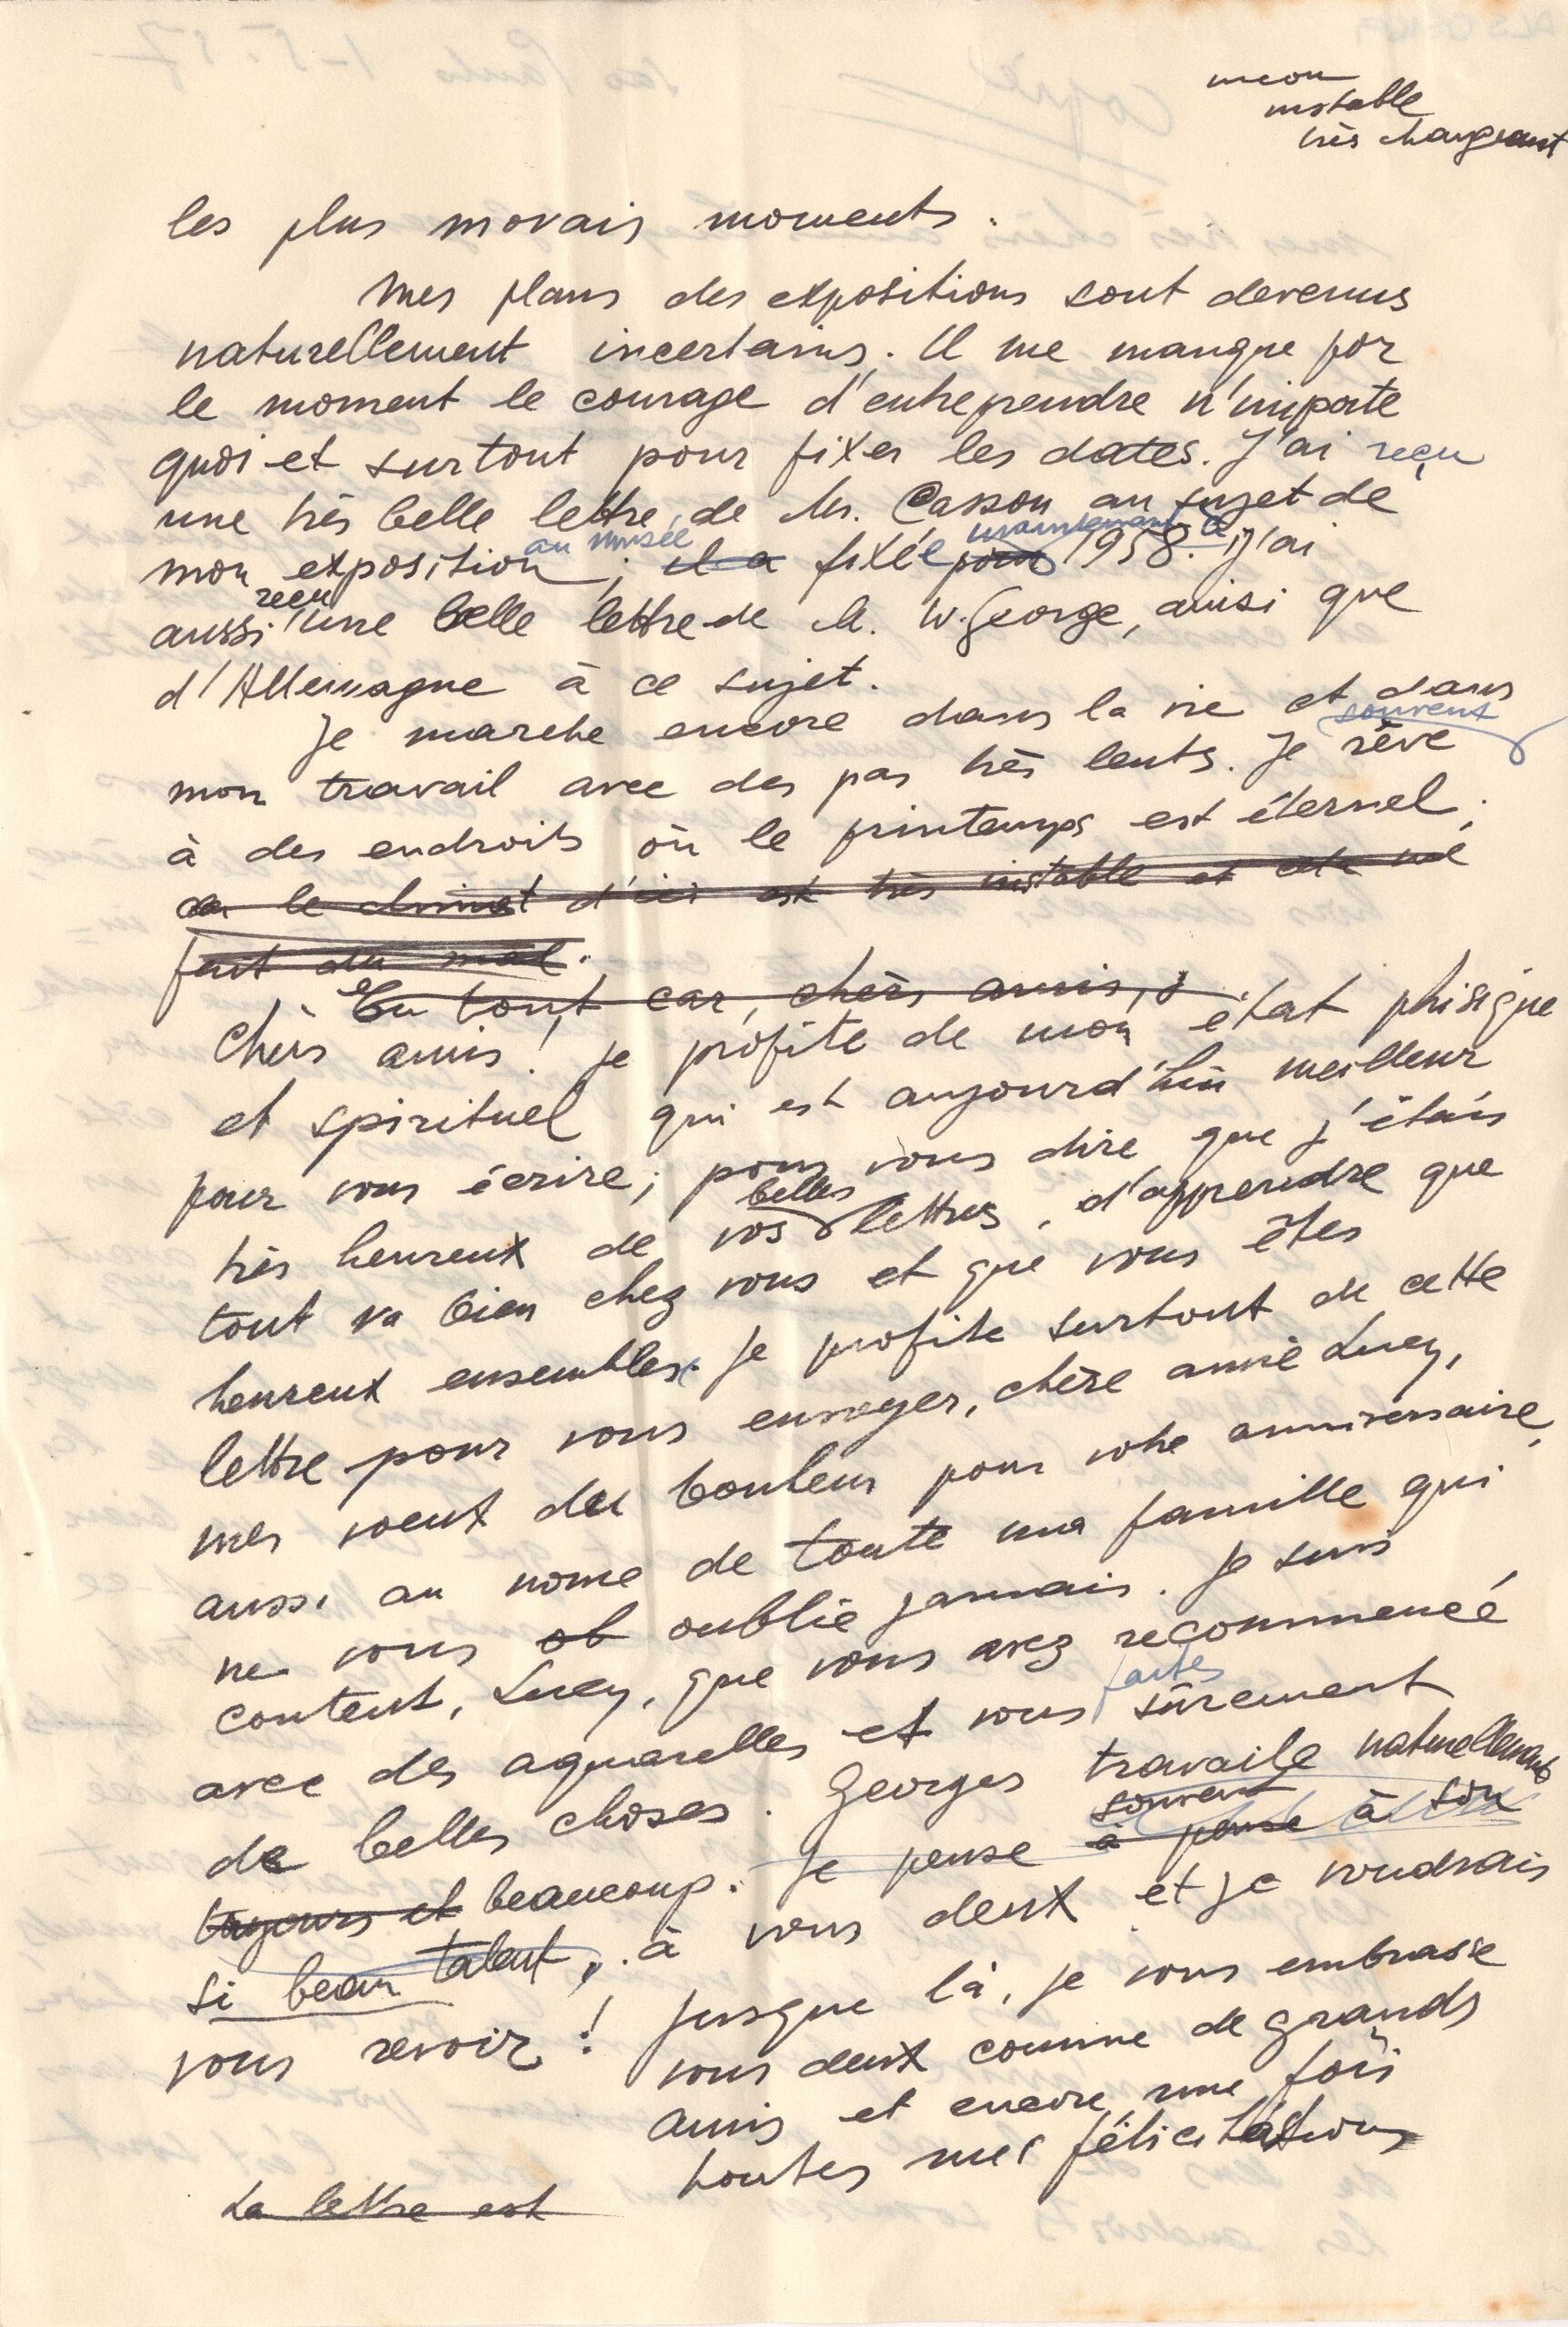 instable
très changeant
les plus movais moments.
Mes plans des expositions sont devenus
naturellement incertains. Il me manque por
le moment le courage d'entreprendre n'importe
quoi et surtout pour fixer les dates. J'ai reçu
une très belle lettre, de Mr. Cassou au sujet de
au musée maintenant
mon exposition; il a fixée pour 1958. J'ai
reçu
aussi une belle lettre de M. W. George, ainsi que
d'Allemagne à ce sujet.
Je marche encore dans la vie et dans
souvent
mon travail avec des pas très lents. Je rêve
à des endroits où le printemps est éternel,
car le climat d'ici est très instable et cela me
fait du mal.
En tout car, chèrs amis, j
Chèrs amis! je profite de mon état phisique
et spirituel qui est aujourd'hui meilleur
pour vous écrire; pour vous dire que j'étais
belles
très heureux de vos lettres, d'apprendre que
tout va bien chez vous et que vous êtes
heureux ensembles. Je profite surtout de cette
lettre pour vous envoyer, chère amie Lucy,
mes voeux de bonheur pour votre anniversaire,
aussi au nome de toute ma famille qui
ne vous ob oublie jamais. Je suis
content, Lucy, que vous avez recommencé
faites
avec des aquarelles et vous sûrement
de belles choses. Georges travaile naturellement
souvent
toujours et beaucoup. Je pense à pense à son
si beau talent, à vous deux et je voudrais
vous revoir! Jusque là, je vous embrasse
vous deux comme de grands
amis et encore une fois
toutes mes félicitations
La lettre est